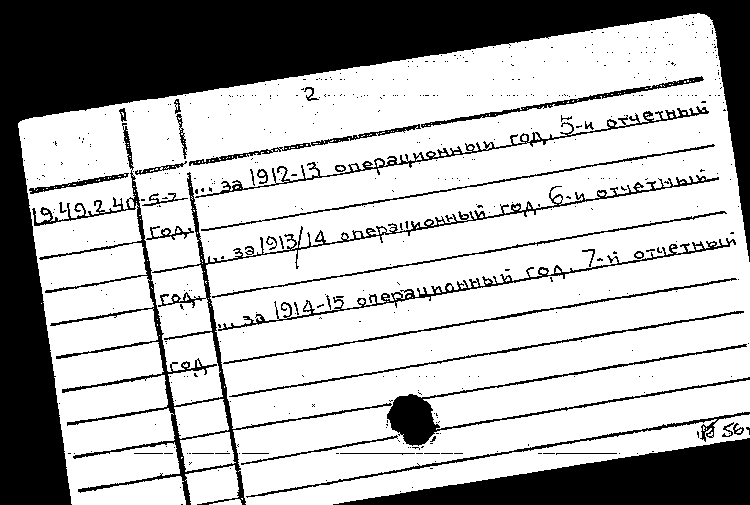 2
19.49.2.40-5-7 ... за 1912-13 операционный год. 5-й отчетный
год.
... за 1913/14 операционный год. 6-й отчетный
год.
... за 1914-15 операционный год. 7-й отчетный
год
56